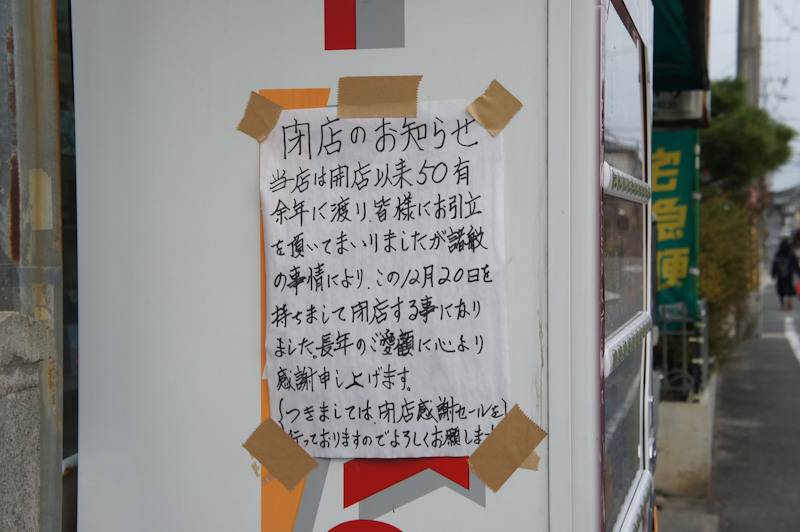 閉店のお知らせ
当店は開店以来50有
余年に渡り、皆様にお引立
を頂いてまいりましたが諸般
の事情により、この12月20日を
持ちまして閉店する事になり
ました。長年のご愛顧に心より
感謝申し上げます。
{つきましては、閉店感謝セールを}
行っておりますのでよろしくお願しま
宅急便